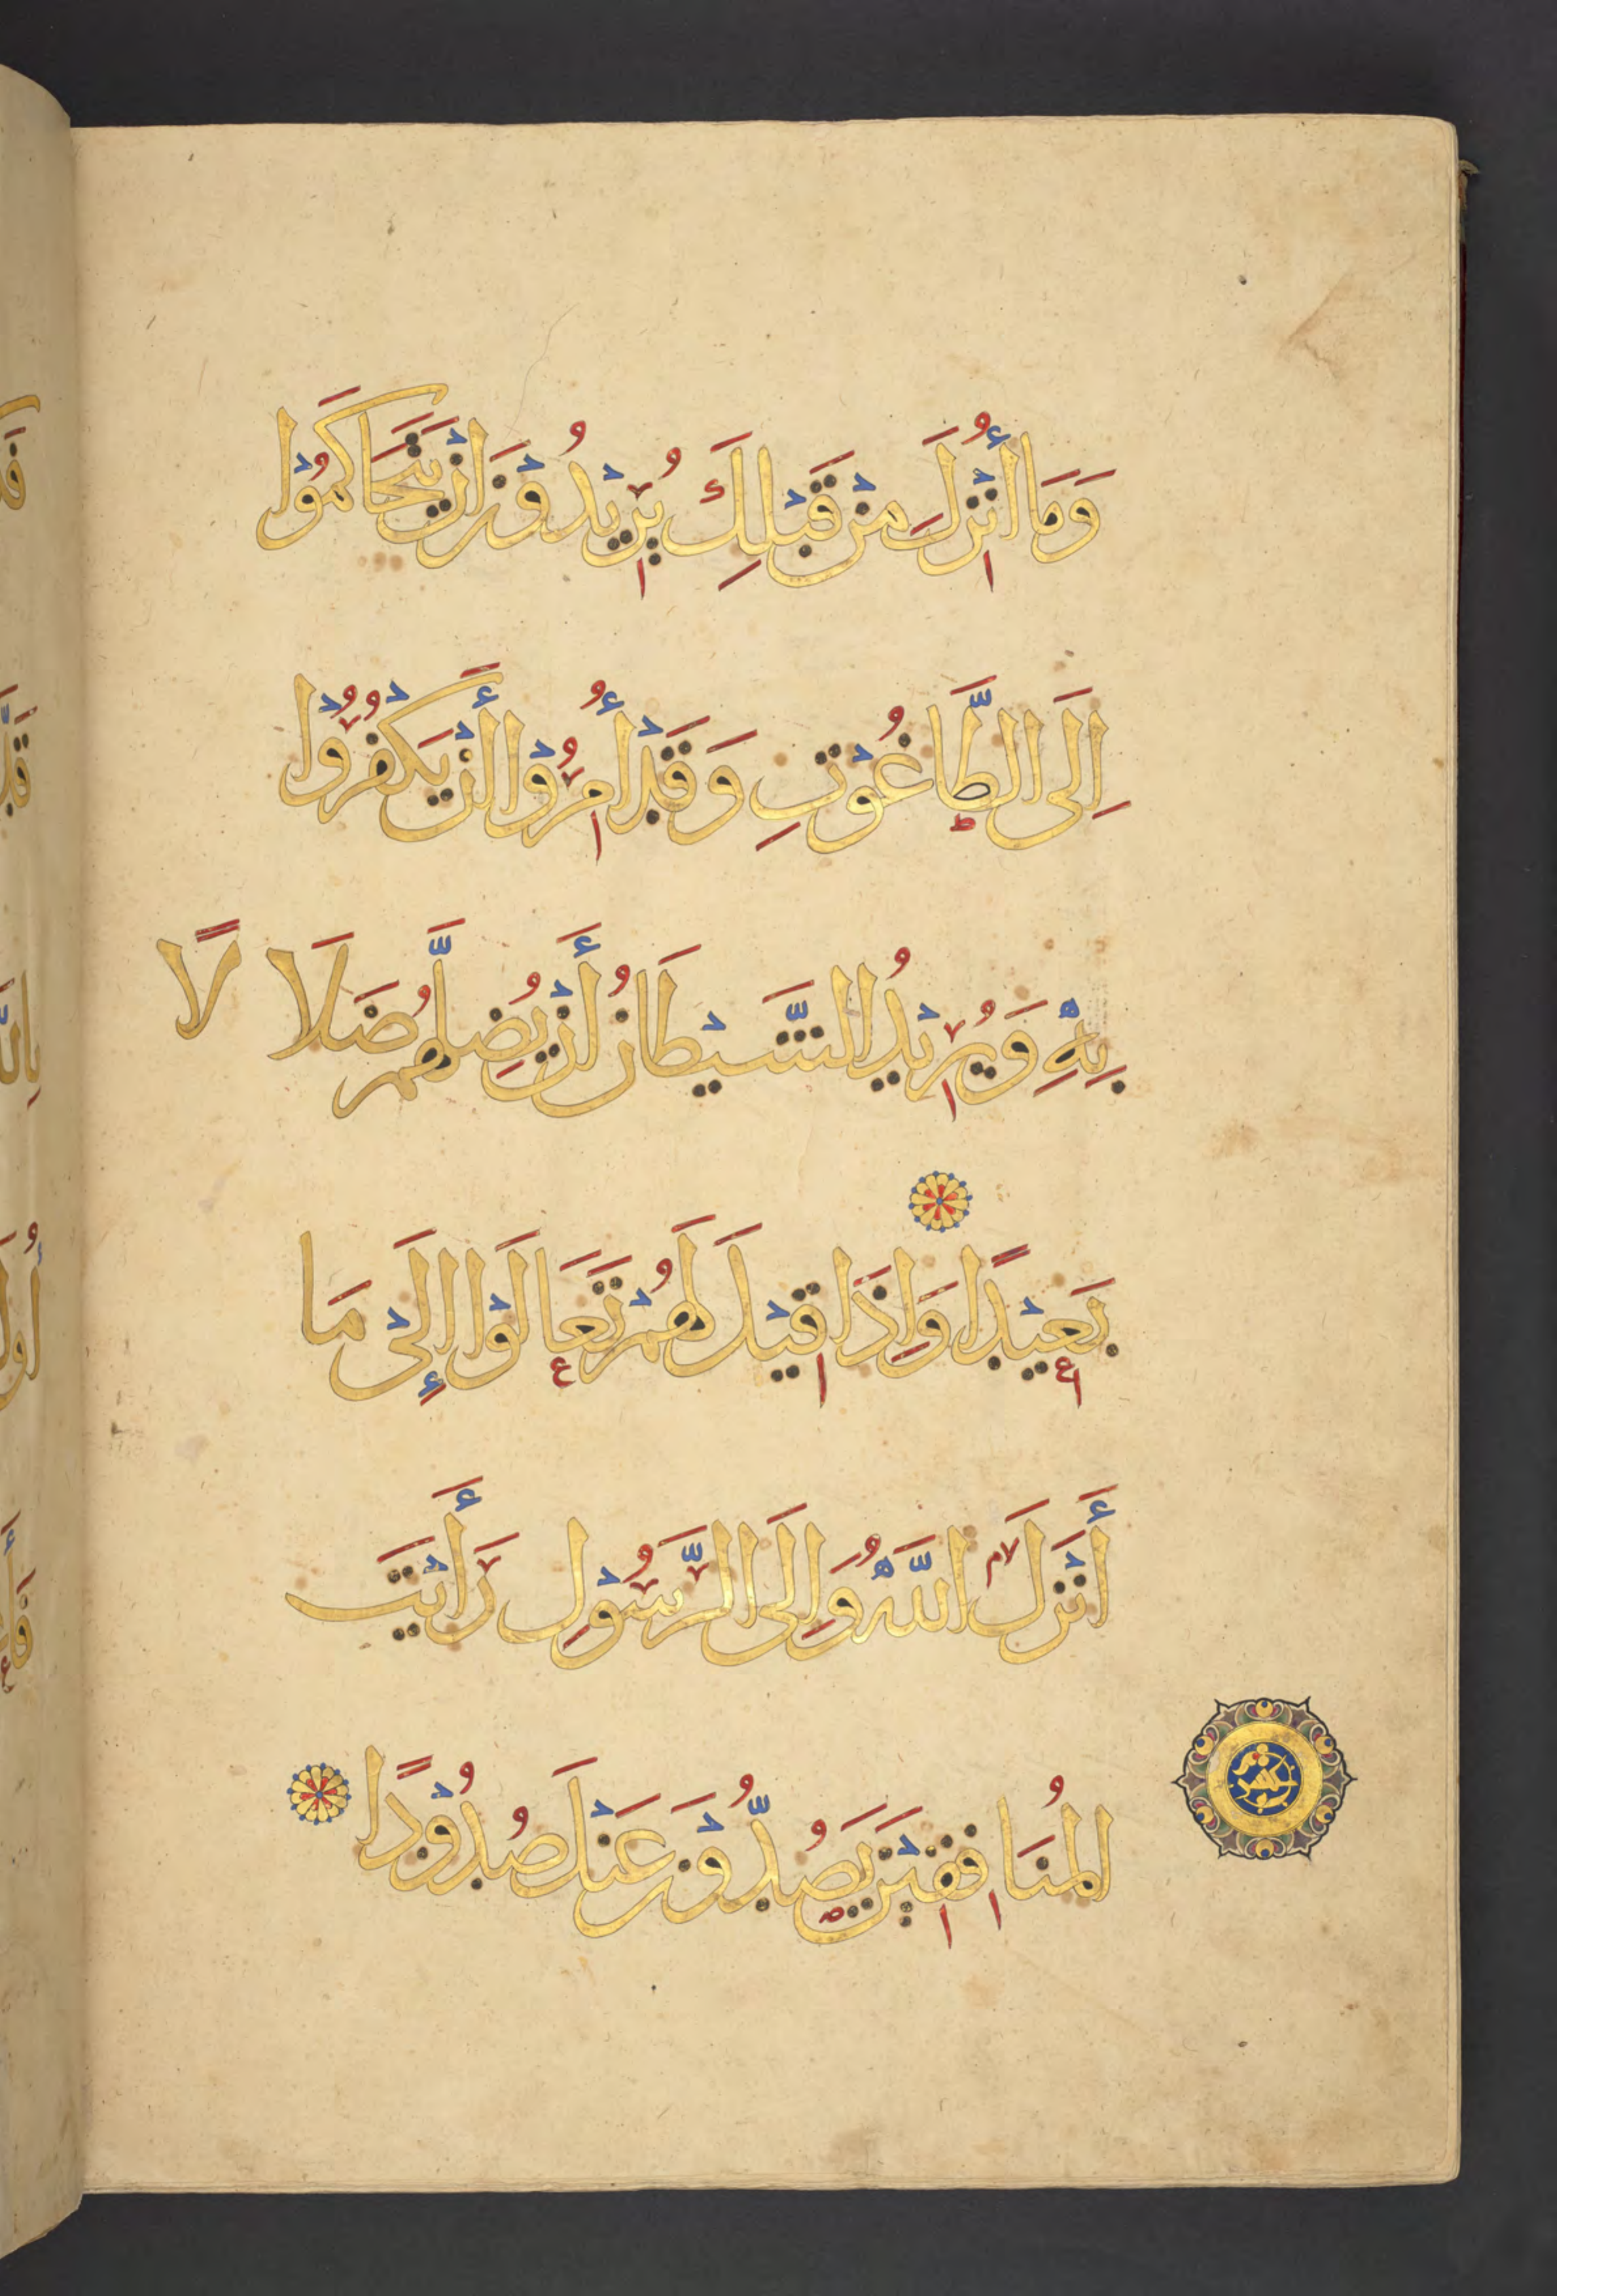 وَمَا أُنْزِلَ مِنْ قَبْلِكَ يُرِيْدُوْنَ اَنْ يَتَحَاكَمُوْا
اِلَى الطَّاغُوْتِ وَقَدْ أُمِرُوْا أَنْ يَكْفُرُوْا
بِهِ وَيُرِيْدُ الشَّيْطَانُ أَنْ يُضِلَّهُمْ ضَلَا لًا
بَعِيْدًا وَاِذَا قِيْلَ لَهُمْ تَعَالَوْا إِلَىْ مَا
أَنْزَلَ اللَّهُ وَاِلَى الرَّسُوْلِ رَأَيْتَ
الْمُنَافِقِيْنَ يَصُدُّوْنَ عَنْكَ صُدُوْدًا